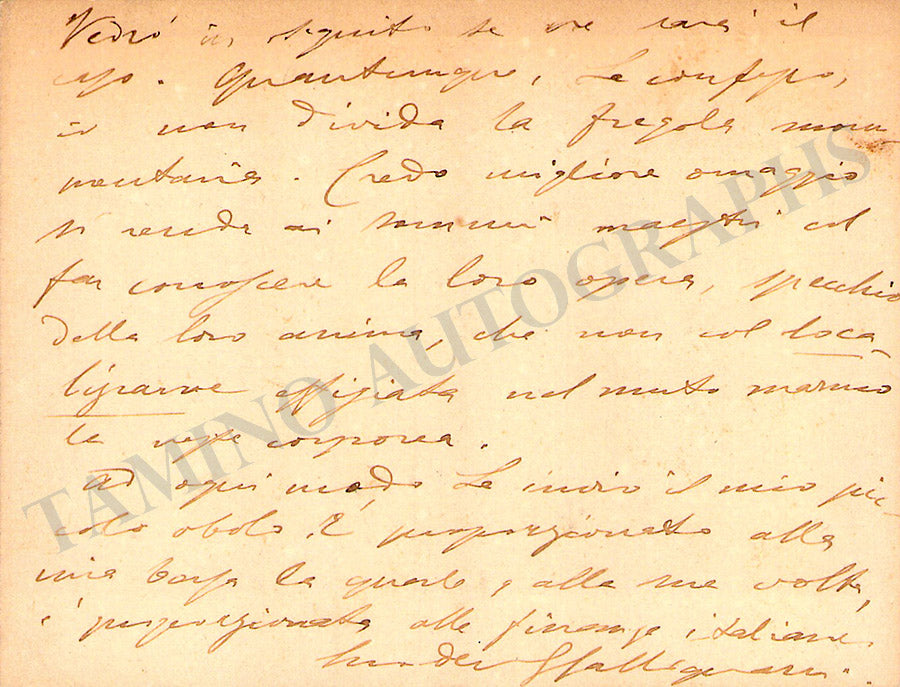 Vedrò in seguito se ne sarà il
caso. Quantunque, Le confesso,
io non divida la fregola monu-
mentaria. Credo migliore omaggio
si renda ai sommi maestri col
far conoscere la loro opera, specchio
della loro anima, che non col loca-
lizzarne effigiata nel muto marmo
la veste corporea.
Ad ogni modo Le invio il mio pic-
colo obolo. È proporzionato alla
mia borsa la quale, alla sua volta,
è proporzionata alle finanze italiane.
TAMINO AUTOGRAPHS